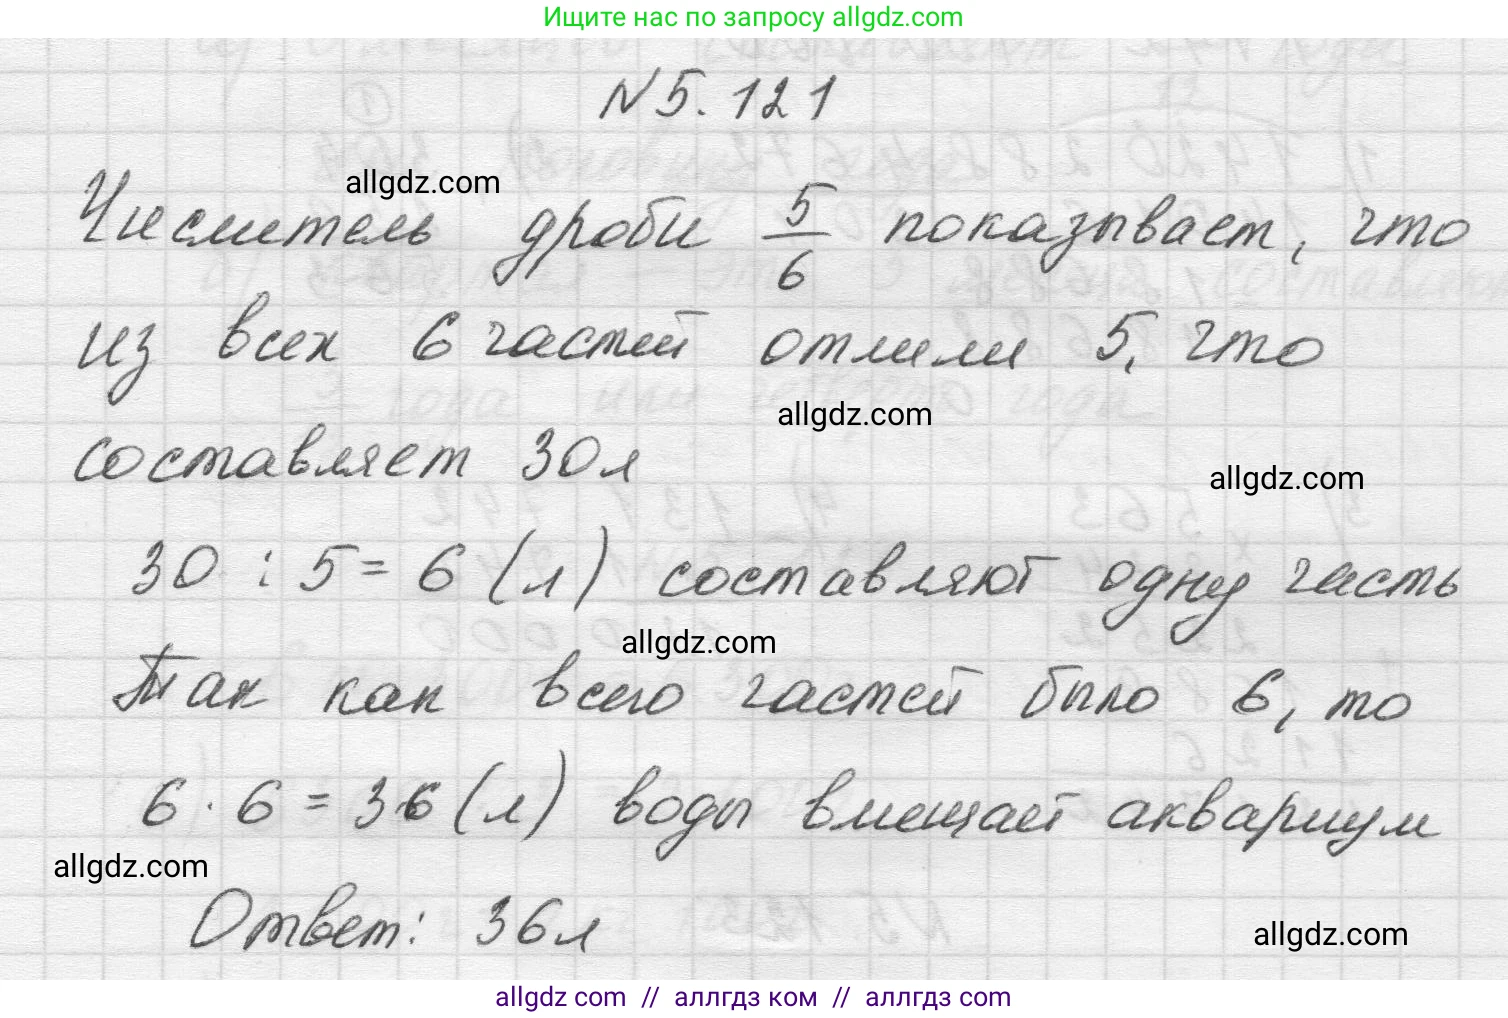 Ищите нас по запросу allgdz.com
№5.121
allgdz.com
Числитель дроби 5/6 показывает, что
из всех 6 частей отлили 5, что
allgdz.com
составляет 30л
allgdz.com
30 : 5 = 6 (л) составляют одну часть
allgdz.com
Так как всего частей было 6, то
6 · 6 = 36 (л) воды вмещает аквариум
allgdz.com
Ответ: 36л
allgdz.com
allgdz com // аллгдз ком // аллгдз com